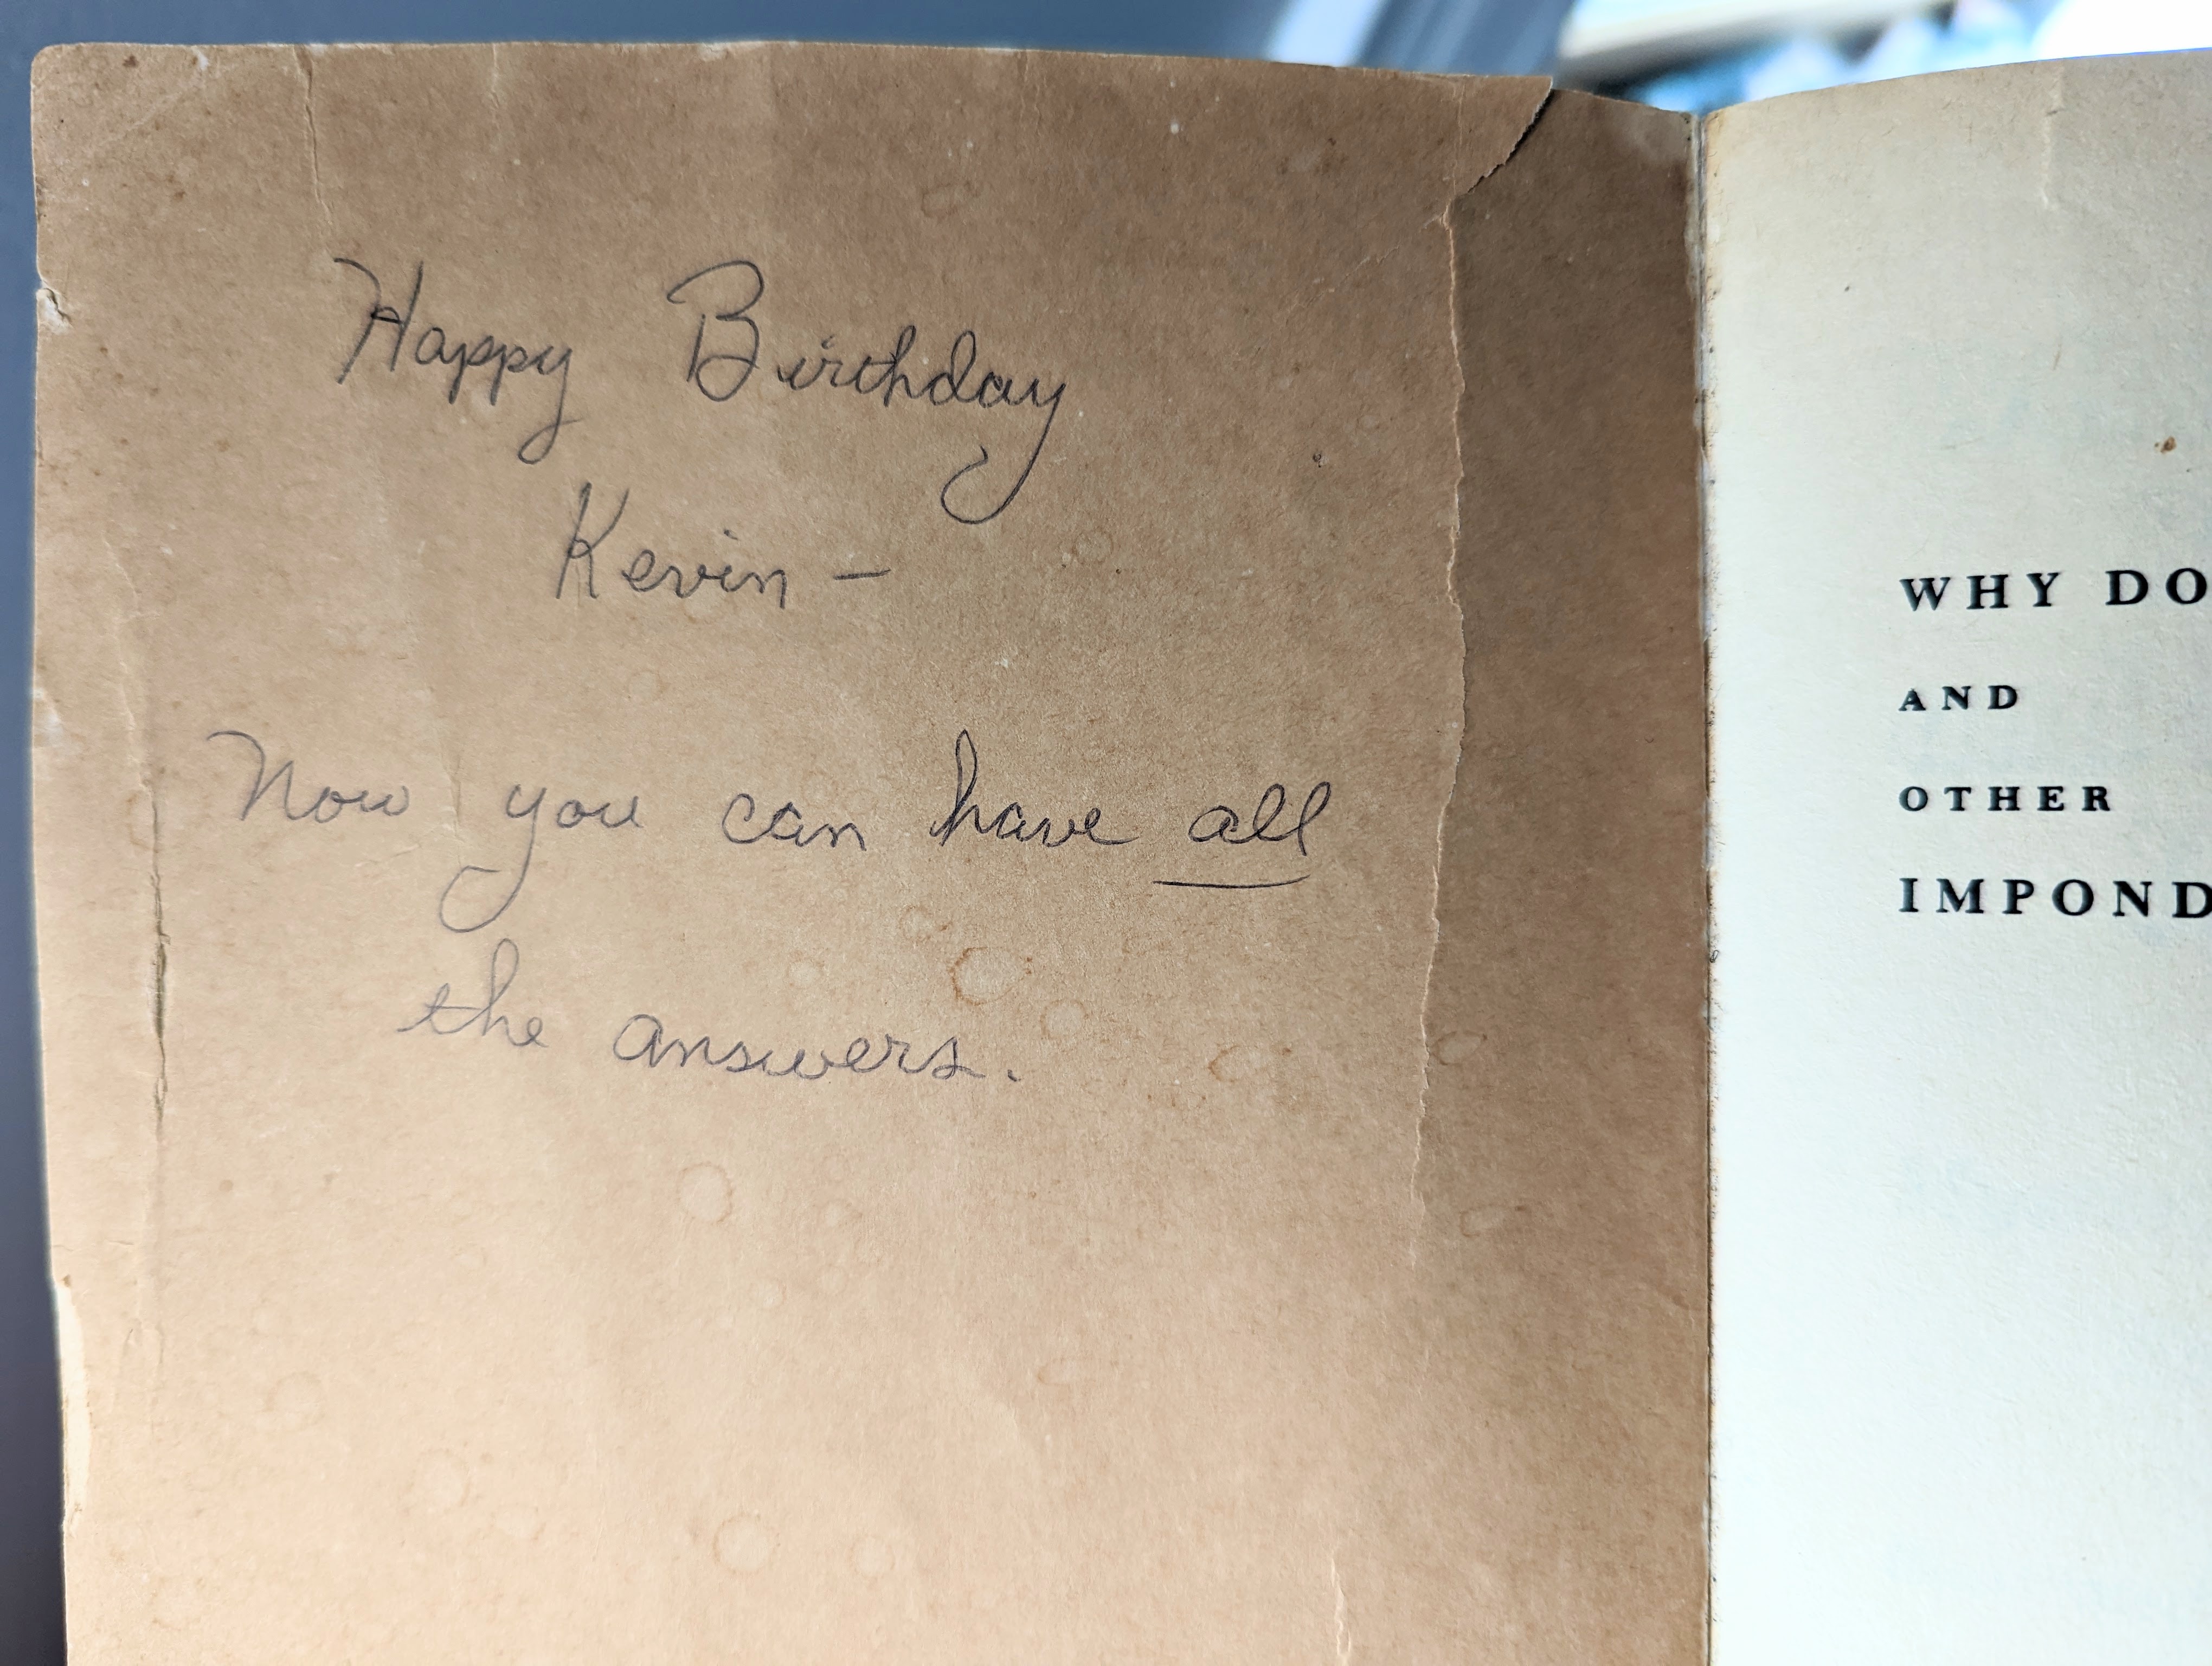 Happy Birthday
Kevin –
Now you can have all
the answers.
WHY DO
AND
OTHER
IMPOND